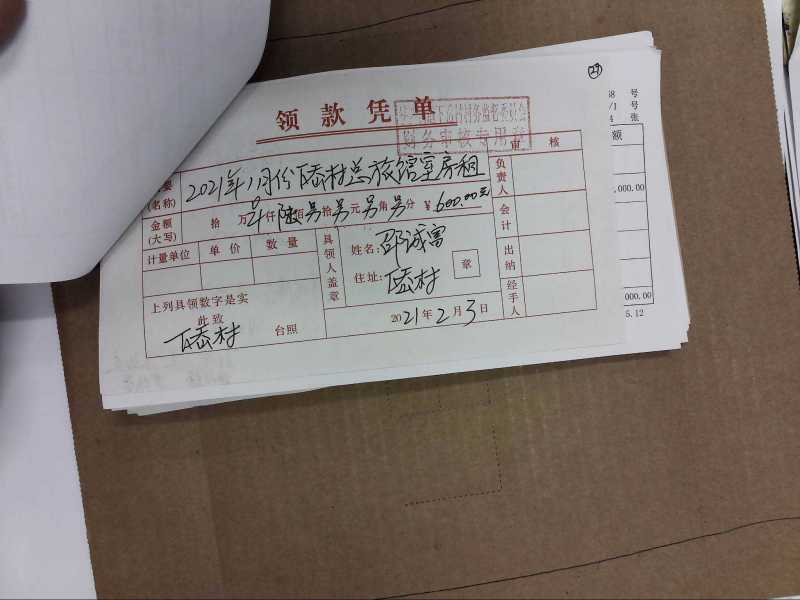 29
领款凭单
财务审核专用章
要
(名称)
2021年
房租
金额
(大写)
拾 万 仟 陆 佰 另 拾 另 元 另 角 另 分 ¥ 600.00元
计量单位 单价 数量
具领人盖章
姓名: 邵诚富
住址: 下岙村
章
上列具领数字是实
此致
下岙村 台照
2021年2月3日
审核
负责人
会计
出纳
经手人
号
号
张
额
,000.00
000.00
5.12